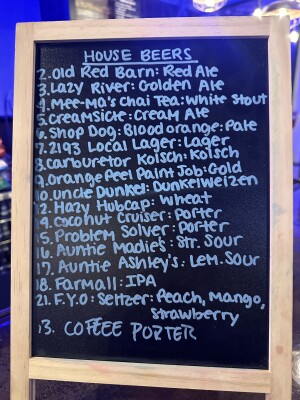 HOUSE BEERS
2. Old Red Barn: Red Ale
3. Lazy River: Golden Ale
4. Mee-Ma's Chai Tea: White Stout
5. Creamsicle: Cream Ale
6. Shop Dog: Blood orange: Pale
7. 2193 Local Lager: Lager
8. Carburetor Kolsch: Kolsch
9. Orange Peel Paint Job: Gold
10. Uncle Dunkel: Dunkelweizen
12. Hazy Hubcap: Wheat
14. Coconut Cruiser: Porter
15. Problem Solver: Porter
16. Auntie Madie's: Str. Sour
17. Auntie Ashley's: Lem. Sour
18. Farmall: IPA
21. F.Y.O: Seltzer: Peach, Mango,
Strawberry
13. COFFEE PORTER